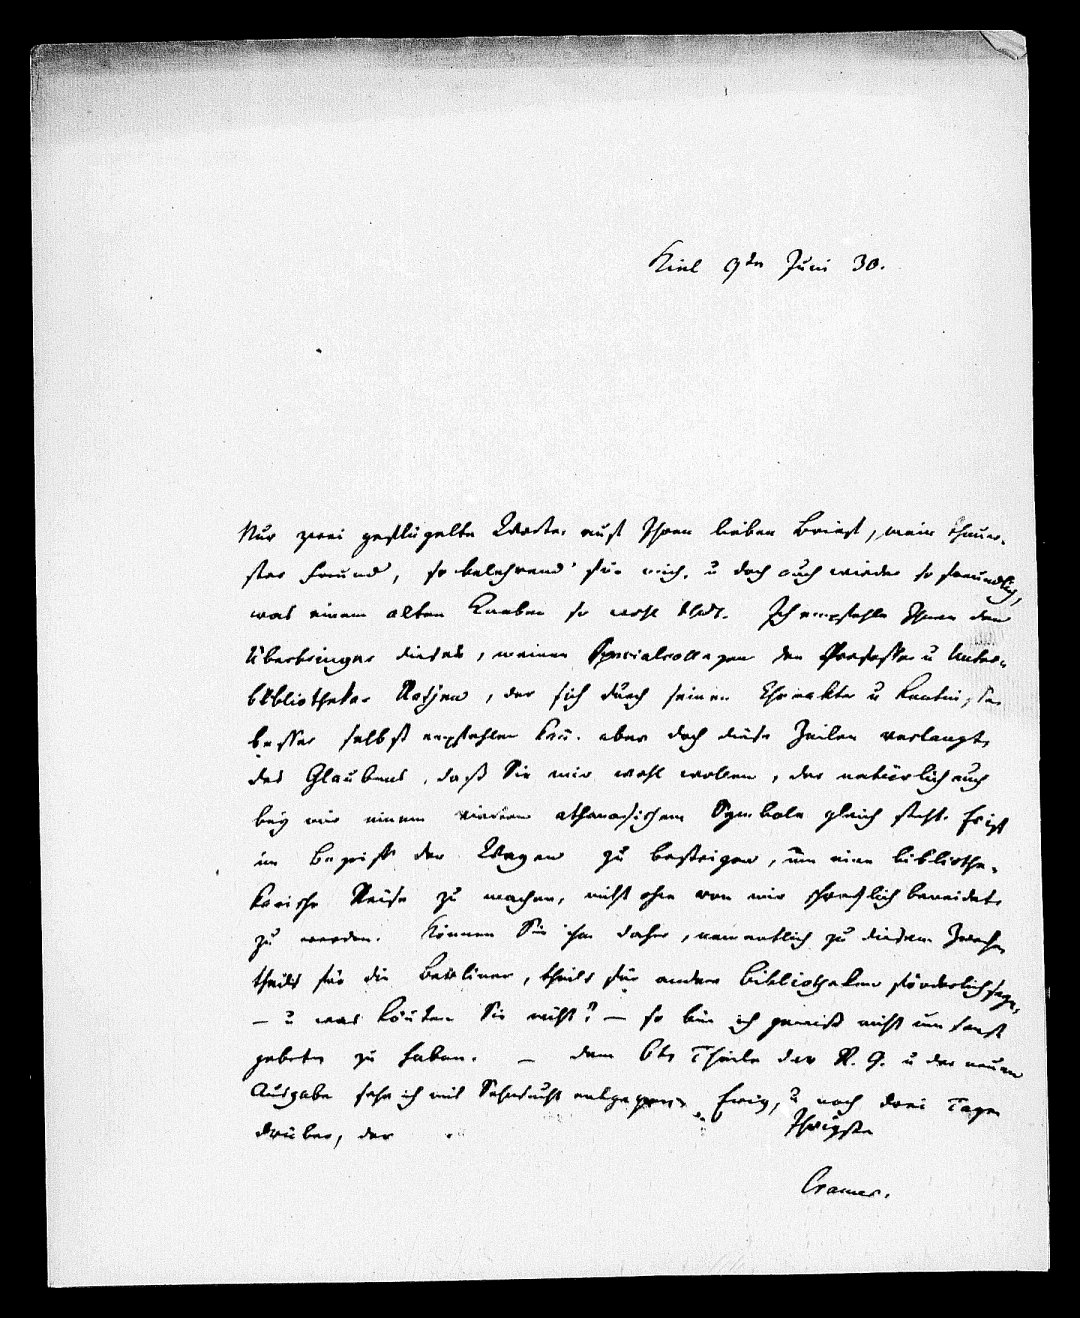 Kiel 9ten Juni 30.
Nur zwei geflügelte Worte auf Ihren lieben Brief, mein theuer-
ster Freund, so belehrend für mich, u doch auch wieder so freundlich,
was einem alten Knaben so wohl thut. Ich empfehle Ihnen den
Überbringer dieses, meinen Specialcollegen den Professor u Unter-
bibliothekar Ratjen, der sich durch seinen Charakter u Kentniße
besser selbst empfehlen kan. aber doch diese Zeilen verlangte
des Glaubens, daß Sie mir wohl wollen, der natürlich auch
bey mir einem athanasischen Symbole gleich steht. Er ist
im Begriff den Wagen zu besteigen, um eine bibliothe-
karische Reise zu machen, nicht ohne von mir schrecklich beneidet
zu werden. Können Sie ihm daher, namentlich zu diesem Zwecke
theils für die Berliner, theils für andere Bibliotheken förderlich seyn,
– u was könten Sie nicht? – so bin ich gewiß nicht umsonst
gebeten zu haben. – dem 6ten Theile der R. G. u der neuen
Ausgabe sehe ich mit Sehnsucht entgegen. Ewig, u noch drei Tage
drüber, der Ihrigste
Cramer.